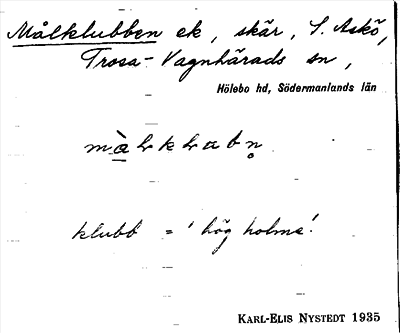 Målklubben ek, skär, S. Askö,
Trosa-Vagnhärads sn,
Hölebo hd, Södermanlands län
klubb = 'hög holme'.
KARL-ELIS NYSTEDT 1935